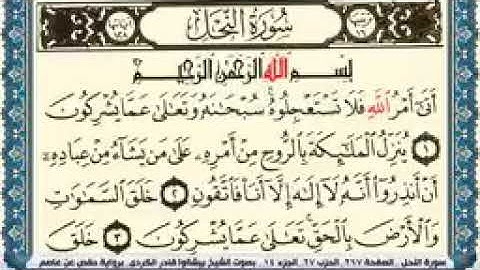 سُورَةُ النَّحْلِ
بِسْمِ اللَّهِ الرَّحْمَٰنِ الرَّحِيمِ
أَتَىٰ أَمْرُ اللَّهِ فَلَا تَسْتَعْجِلُوهُ سُبْحَانَهُ وَتَعَالَىٰ عَمَّا يُشْرِكُونَ
١ يُنَزِّلُ الْمَلَائِكَةَ بِالرُّوحِ مِنْ أَمْرِهِ عَلَىٰ مَن يَشَاءُ مِنْ عِبَادِهِ
أَنْ أَنذِرُوا أَنَّهُ لَا إِلَٰهَ إِلَّا أَنَا فَاتَّقُونِ ٢ خَلَقَ السَّمَاوَاتِ
وَالْأَرْضَ بِالْحَقِّ تَعَالَىٰ عَمَّا يُشْرِكُونَ ٣ خَلَقَ
سورة النحل . الصفحة ٢٦٧ . الحزب ٢٧ . الجزء ١٤ . بصوت الشيخ بيشةوا قادر الكردي . برواية حفص عن عاصم